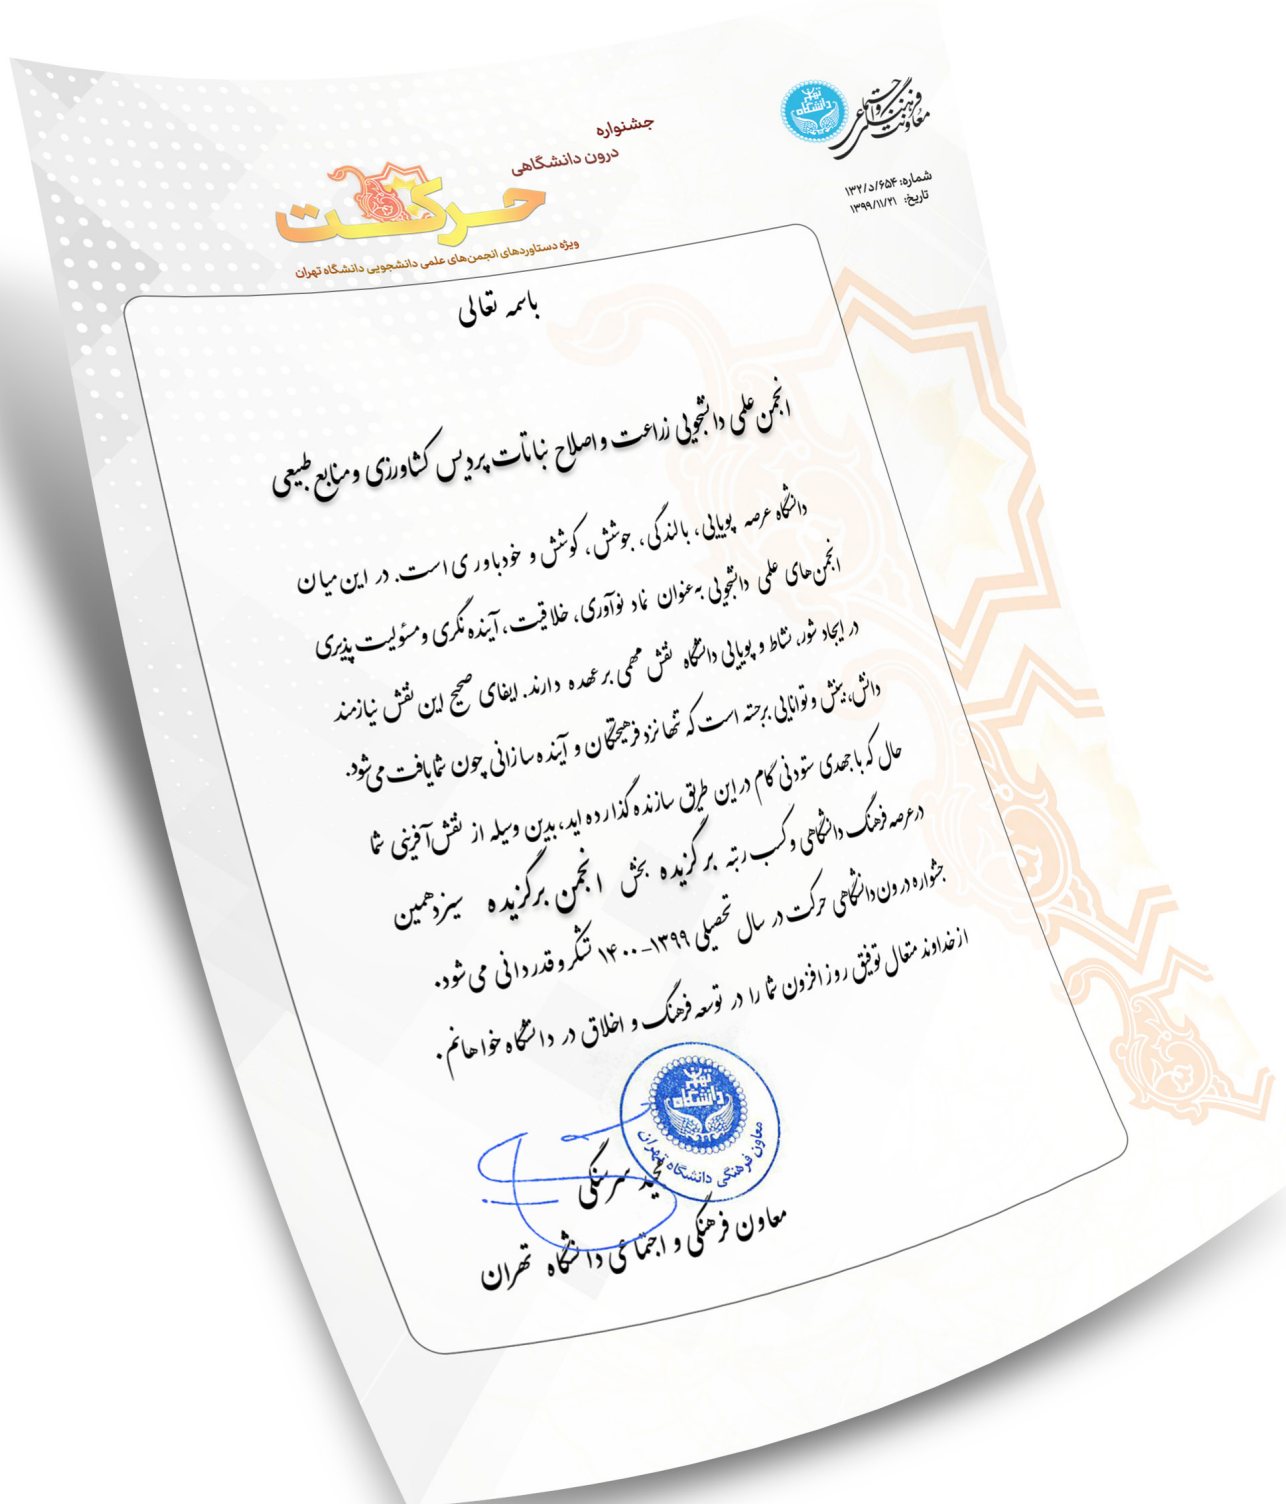 معاونت فرهنگی و اجتماعی
دانشگاه تهران
شماره: ۱۳۲/د/۶۵۴
تاریخ: ۱۳۹۹/۱۱/۲۱
جشنواره
درون دانشگاهی
حرکت
ویژه دستاوردهای انجمن‌های علمی دانشجویی دانشگاه تهران
باسمه تعالی
انجمن علمی دانشجویی زراعت و اصلاح نباتات پردیس کشاورزی و منابع طبیعی
دانشگاه عرصه پویایی، بالندگی، جوشش، کوشش و خودباوری است. در این میان
انجمن‌های علمی دانشجویی به‌عنوان نماد نوآوری، خلاقیت، آینده‌نگری و مسئولیت پذیری
در ایجاد شور، نشاط و پویایی دانشگاه نقش مهمی بر عهده دارند. ایفای صحیح این نقش نیازمند
دانش، بینش و توانایی برجسته است که تنها نزد فرهیختگان و آینده سازانی چون شما یافت می‌شود.
حال که با جهدی ستودنی گام در این طریق سازنده گذارده اید، بدین وسیله از نقش آفرینی شما
در عرصه فرهنگ دانشگاهی و کسب رتبه برگزیده بخش انجمن برگزیده سیزدهمین
جشواره درون دانشگاهی حرکت در سال تحصیلی ۱۳۹۹-۱۴۰۰ تشکر و قدردانی می شود.
از خداوند متعال توفیق روز افزون شما را در توسعه فرهنگ و اخلاق در دانشگاه خواهانم.
دانشگاه تهران
معاون فرهنگی دانشگاه تهران
مجید سرسنگی
معاون فرهنگی و اجتماعی دانشگاه تهران